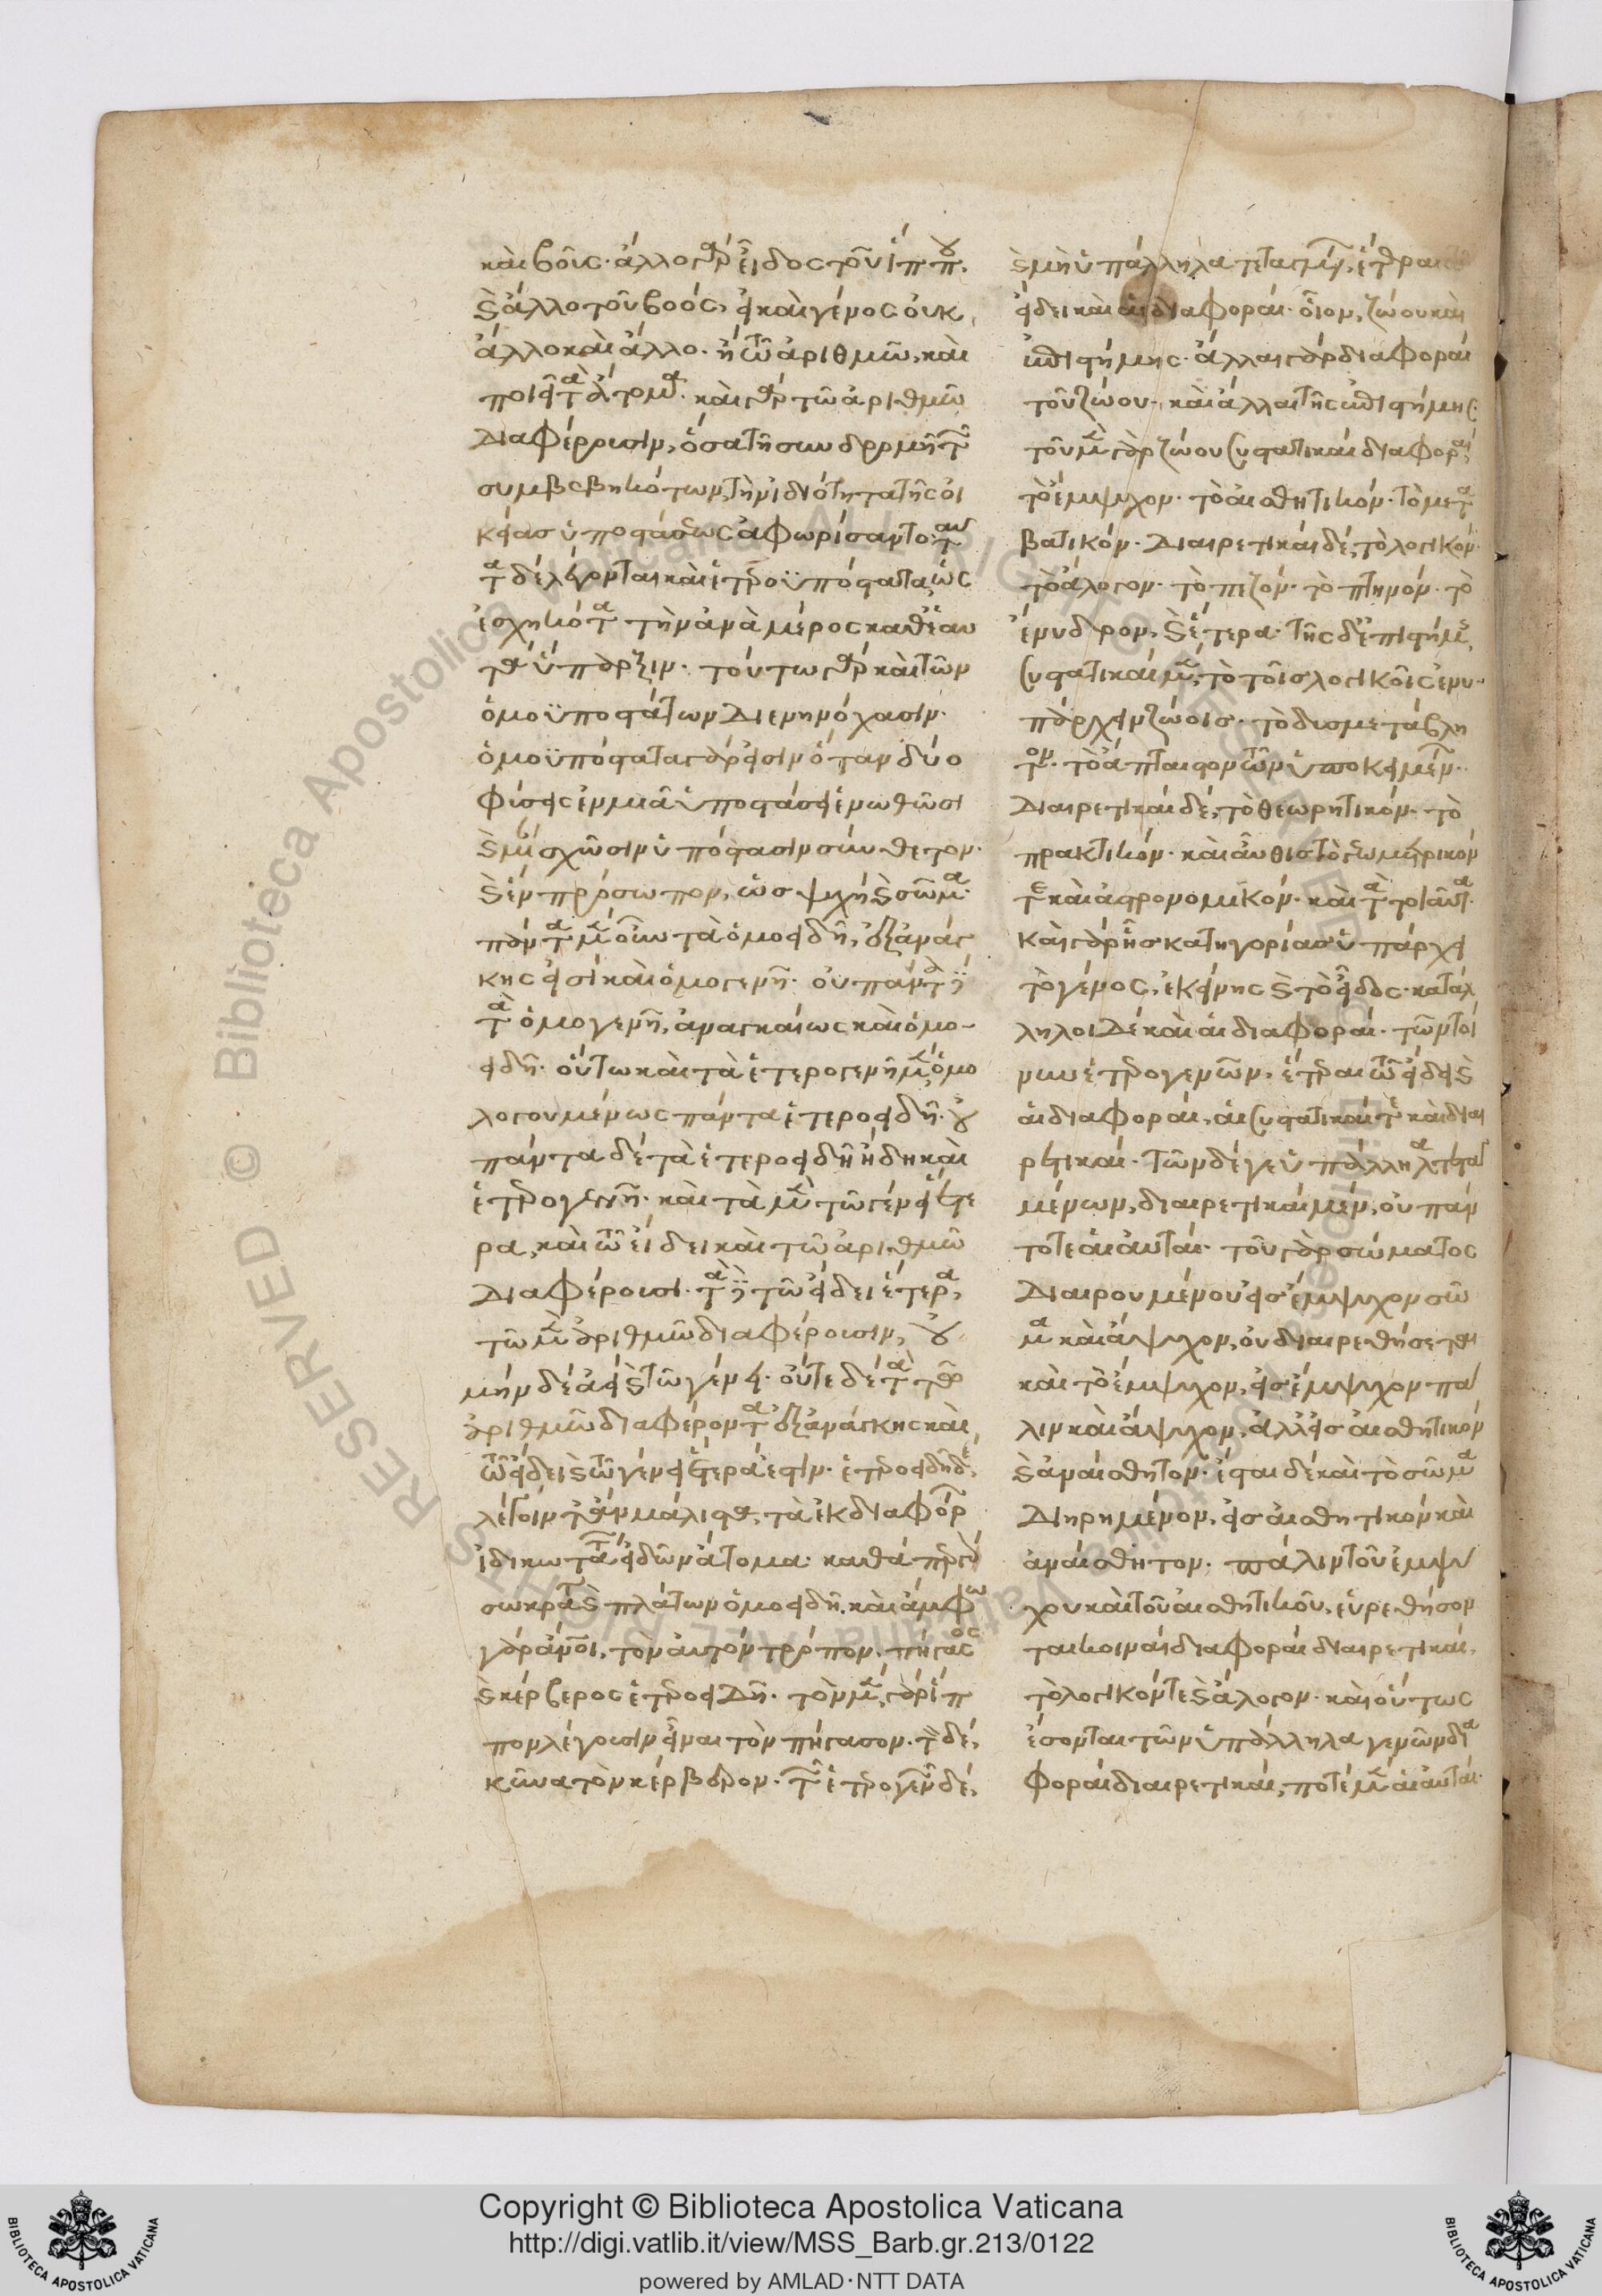 καὶ βοῦς· ἄλλο γὰρ εἶδος τοῦ ἵππου,
καὶ ἄλλο τοῦ βοός, εἰ καὶ γένος οὐκ
ἄλλο καὶ ἄλλο. ἢ τῷ ἀριθμῷ, καὶ
ποιεῖ τὰ ἄτομα. καὶ γὰρ τῷ ἀριθμῷ
διαφέρουσιν, ὅσα τῇ συνδρομῇ τῶν
συμβεβηκότων, τὴν ἰδιότητα τῆς οἰ
κείας ὑποστάσεως ἀφωρίσαντο· ταῦ
τα δὲ λέγονται καὶ ἑτεροϋπόστατα, ὡς
ἐσχηκότα τὴν ἀνὰ μέρος καθ' ἑαυ
τὰ ὕπαρξιν. τούτῳ γὰρ καὶ τῶν
ὁμοϋποστάτων διενηνόχασιν.
ὁμοϋπόστατα γάρ εἰσιν ὅταν δύο
φύσεις ἐν μιᾷ ὑποστάσει ἑνωθῶσι
καὶ μίαν σχῶσιν ὑπόστασιν σύνθετον·
καὶ ἓν πρόσωπον, ὡς ψυχὴ καὶ σῶμα.
πάντα μὲν οὖν τὰ ὁμοειδῆ, ἐξ ἀνάγ
κης εἰσὶ καὶ ὁμογενῆ. οὐ πάντα δὲ
τὰ ὁμογενῆ, ἀναγκαίως καὶ ὁμο-
ειδῆ. οὕτω καὶ τὰ ἑτερογενῆ μὲν, ὁμο
λογουμένως πάντα ἑτεροειδῆ. οὐ
πάντα δὲ τὰ ἑτεροειδῆ ἤδη καὶ
ἑτερογενῆ. καὶ τὰ μὲν τῷ γένει ἕτε
ρα, καὶ τῷ εἴδει καὶ τῷ ἀριθμῷ
διαφέρουσι. τὰ δὲ τῷ εἴδει ἕτερα,
τῷ μὲν ἀριθμῷ διαφέρουσιν, οὐ
μὴν δὲ ἀεὶ καὶ τῷ γένει. οὔτε δὲ τὰ τῷ
ἀριθμῷ διαφέροντα ἐξ ἀνάγκης καὶ
τῷ εἴδει καὶ τῷ γένει ἕτερά ἐστιν. ἑτεροειδῆ δὲ,
λέγοιντ' ἂν μάλιστα, τὰ ἐκ διαφόρων
εἰδῶν ἄτομα. καθάπερ
Σωκράτης καὶ Πλάτων ὁμοειδῆ. καὶ ἄμφω
γὰρ ἄνθρωποι, τὸν αὐτὸν τρόπον. πήγασος
καὶ κέρβερος ἑτεροειδῆ. τὸν μὲν γὰρ ἵπ
πον λέγουσιν εἶναι τὸν πήγασον. τὸν δὲ,
κύνα τὸν κέρβερον. τῶν ἑτερογενῶν δὲ,
καὶ μὴ ὑπάλληλα τεταγμένων, ἕτεραι
εἴδει καὶ αἱ διαφοραί. οἷον, ζώου καὶ
ἐπιστήμης. ἄλλαι γὰρ διαφοραὶ
τοῦ ζώου. καὶ ἄλλαι τῆς ἐπιστήμης.
τοῦ μὲν γὰρ ζώου συστατικαὶ διαφοραί,
τὸ ἔμψυχον. τὸ αἰσθητικόν. τὸ μετα
βατικόν. διαιρετικαὶ δὲ, τὸ λογικόν.
τὸ ἄλογον. τὸ πεζόν. τὸ πτηνόν. τὸ
ἔνυδρον, καὶ ἕτερα. τῆς δὲ ἐπιστήμης,
συστατικαὶ μὲν, τὸ τοῖς λογικοῖς ἐνυ-
πάρχειν ζώοις. τὸ δυσμετάβλη
τον. τὸ ἄπταιστον τῶν ὑποκειμένων.
διαιρετικαὶ δὲ, τὸ θεωρητικόν. τὸ
πρακτικόν. καὶ αὖθις τὸ γεωμετρικόν
τε καὶ ἀστρονομικόν. καὶ τὰ τοιαῦτα.
καὶ γὰρ ἧς κατηγορίας ὑπάρχει
τὸ γένος, ἐκείνης καὶ τὸ εἶδος. κατάλ
ληλοι δὲ καὶ αἱ διαφοραί. τῶν τοί
νυν ἑτερογενῶν, ἕτεραι τῷ εἴδει καὶ
αἱ διαφοραί, αἱ συστατικαί τε καὶ διαι
ρετικαί. τῶν δέ γε ὑπάλληλα τεταγ
μένων, διαιρετικαὶ μὲν, οὐ πάν
τοτε αἱ αὐταί. τοῦ γὰρ σώματος
διαιρουμένου εἰς ἔμψυχον σῶ
μα καὶ ἄψυχον, οὐ διαιρεθήσεται
καὶ τὸ ἔμψυχον, εἰς ἔμψυχον πά
λιν καὶ ἄψυχον, ἀλλ' εἰς αἰσθητικὸν
καὶ ἀναίσθητον. ἔσται δὲ καὶ τὸ σῶμα
διῃρημένον, εἰς αἰσθητικὸν καὶ
ἀναίσθητον. πάλιν τοῦ ἐμψύ
χου καὶ τοῦ αἰσθητικοῦ, εὑρεθήσον
ται κοιναὶ διαφοραὶ διαιρετικαί,
τὸ λογικόν τε καὶ ἄλογον. καὶ οὕτως
ἔσονται τῶν ὑπάλληλα γενῶν δια
φοραὶ διαιρετικαί, ποτὲ μὲν αἱ αὐταί.
Copyright © Biblioteca Apostolica Vaticana
http://digi.vatlib.it/view/MSS_Barb.gr.213/0122
powered by AMLAD·NTT DATA